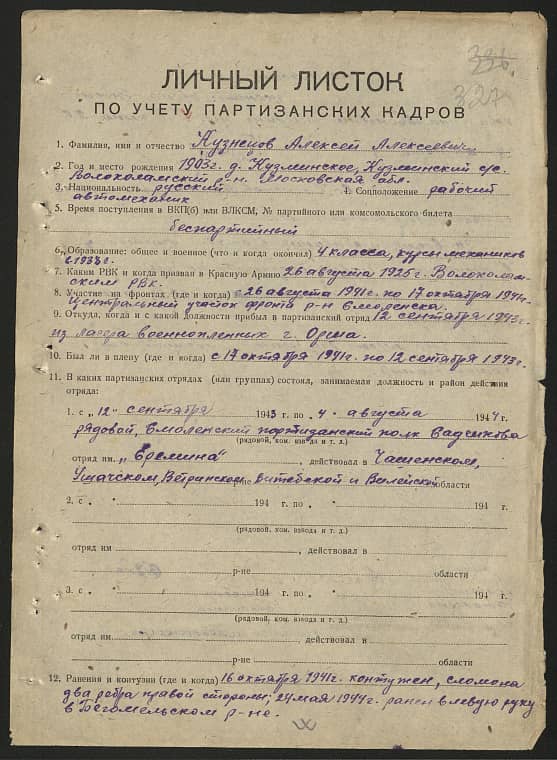 327
ЛИЧНЫЙ ЛИСТОК
ПО УЧЕТУ ПАРТИЗАНСКИХ КАДРОВ
1. Фамилия, имя и отчество Кузнецов Алексей Алексеевич
2. Год и место рождения 1903 г. д. Кузминское, Кузминский с/с.
Волоколамский р-н. Московская обл.
3. Национальность русский 4. Соцположение рабочий
автомеханик
5. Время поступления в ВКП(б) или ВЛКСМ, № партийного или комсомольского билета
беспартийный
6. Образование: общее и военное (что и когда окончил) 4 класса, курсы механиков
в 1933 г.
7. Каким РВК и когда призван в Красную Армию 26 августа 1925 г. Волоколам-
ским РВК.
8. Участие на фронтах (где и когда) с 26 августа 1941 г. по 17 октября 1941 г.
Центральный участок фронта р-н Смоленска.
9. Откуда, когда и с какой должности прибыл в партизанский отряд 12 сентября 1943 г.
из лагеря военнопленных г. Орша.
10. Был ли в плену (где и когда) с 17 октября 1941 г. по 12 сентября 1943 г.
11. В каких партизанских отрядах (или группах) состоял, занимаемая должность и район действия
отряда:
1. с „12" сентября 1943 г. по „4" августа 1944 г.
рядовой, Смоленский партизанский полк Садчикова
(рядовой, ком. взвода и т. д.)
отряд им. „Еремина" , действовал в Чашенском,
Ушачском, Ветринском р-не Витебской и Вилейской области
2. с „ " 194 г. по „ " 194 г.
(рядовой, ком. взвода и т. д.)
отряд им. , действовал в
р-не области
3. с „ " 194 г. по „ " 194 г.
(рядовой, ком. взвода и т. д.)
отряд им. , действовал в
р-не области
12. Ранения и контузии (где и когда) 16 октября 1941 г. контужен, сломона
два ребра правой стороны; 24 мая 1944 г. ранен в левую руку
в Бегомельском р-не.